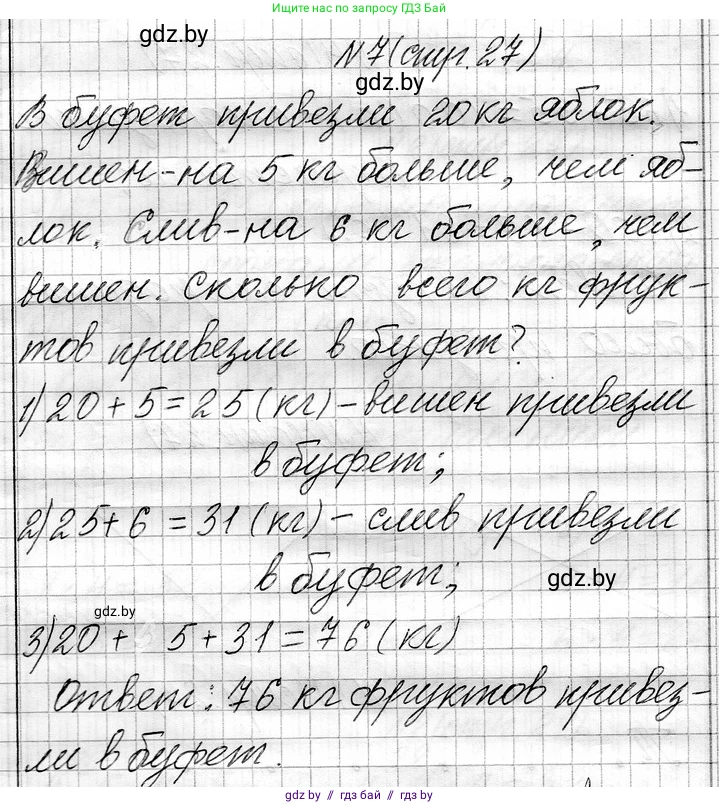 Ищите нас по запросу ГДЗ Бай
gdz.by
№7(стр.27)
gdz.by
В буфет привезли 20 кг яблок.
Вишен-на 5 кг больше, чем яб-
лок. Слив-на 6 кг больше, чем
вишен. Сколько всего кг фрук-
тов привезли в буфет?
1) 20 + 5 = 25 (кг) - вишен привезли
в буфет;
2) 25 + 6 = 31 (кг) - слив привезли
в буфет;
gdz.by
gdz.by
3) 20 + 5 + 31 = 76 (кг)
Ответ: 76 кг фруктов привез-
ли в буфет.
gdz.by // гдз бай // gdz.by